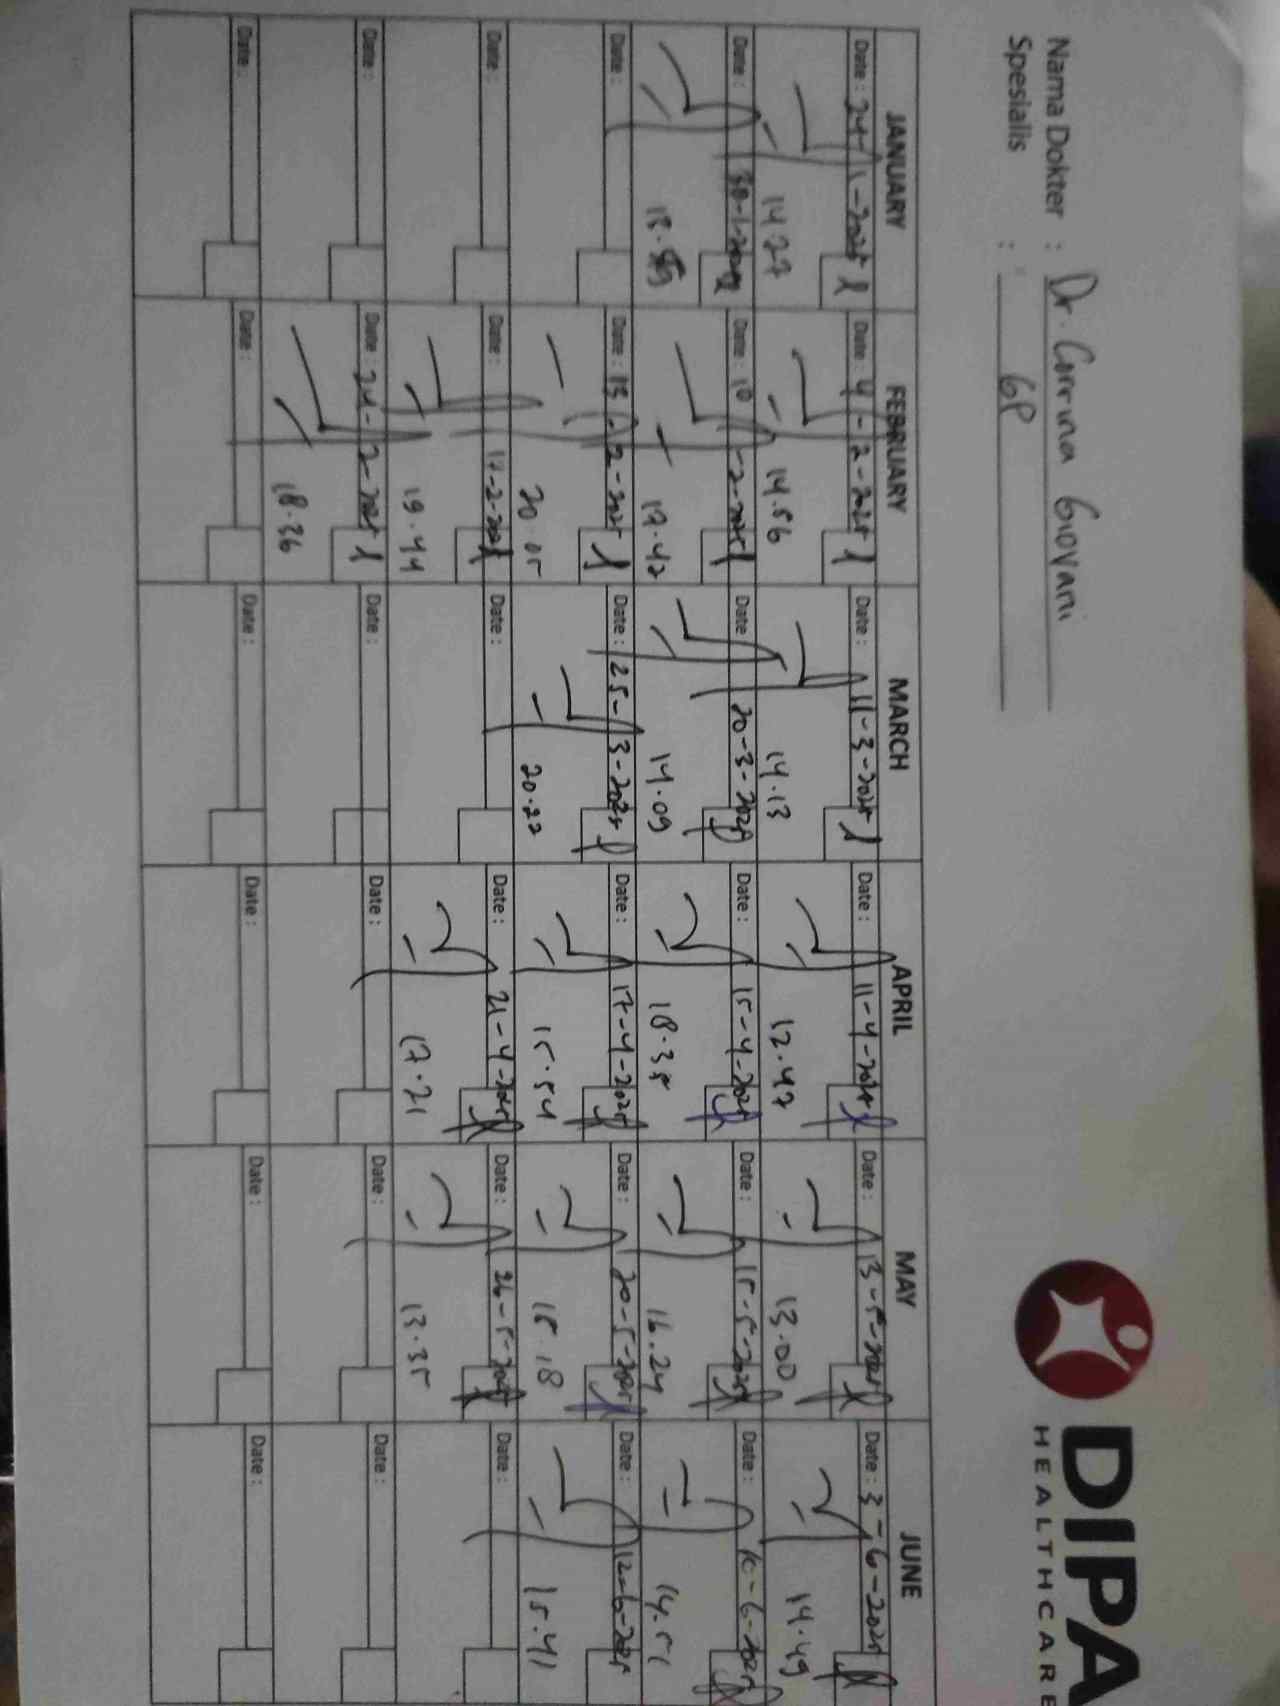 DIPA
HEALTHCARE
Nama Dokter : Dr. Corrina Giovani
Spesialis : GP
JANUARY FEBRUARY MARCH APRIL MAY JUNE
Date : 24-1-2025 Date : 4-2-2025 Date : 11-3-2025 Date : 11-4-2025 Date : 13-5-2025 Date : 3-6-2025
14.27 14.56 14.13 12.47 13.00 14.49
Date : 30-1-2025 Date : 10-2-2025 Date : 20-3-2025 Date : 15-4-2025 Date : 15-5-2025 Date : 10-6-2025
18.59 17.42 14.09 18.35 16.24 14.51
Date : Date : 13-2-2025 Date : 25-3-2025 Date : 17-4-2025 Date : 20-5-2025 Date : 12-6-2025
20.05 20.22 15.54 18.18 15.41
Date : Date : 17-2-2025 Date : Date : 21-4-2025 Date : 26-5-2025 Date :
19.44 17.21 13.35
Date : Date : 24-2-2025 Date : Date : Date : Date :
18.36
Date : Date : Date : Date : Date : Date :